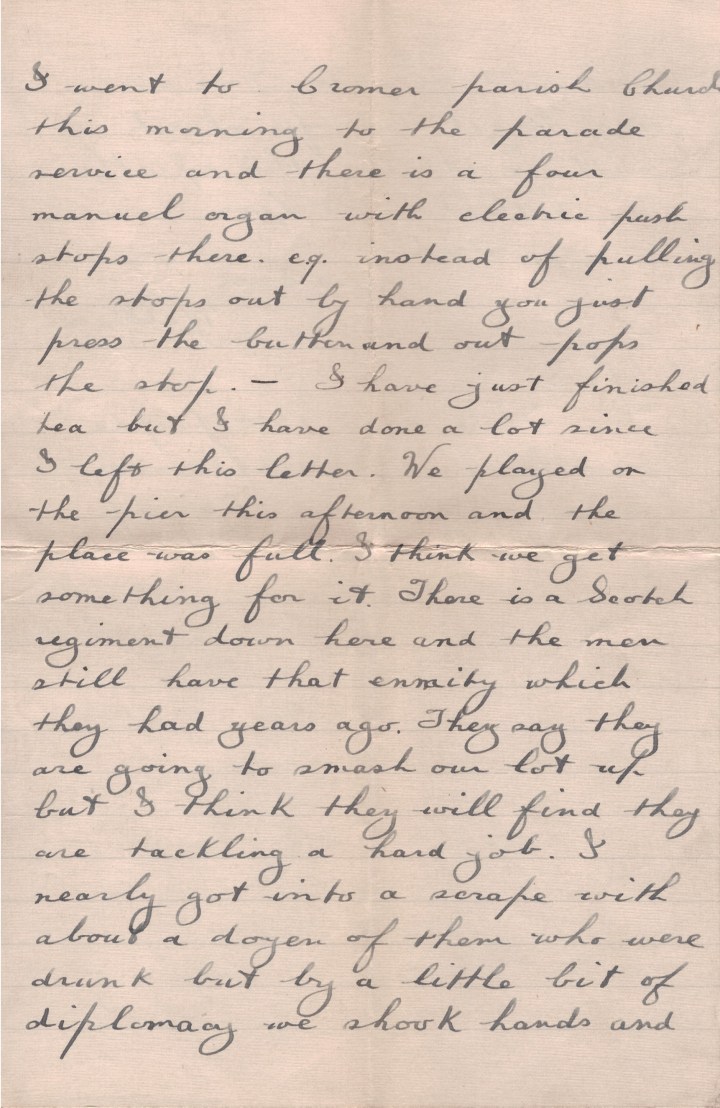 I went to Cromer parish Church
this morning to the parade
service and there is a four
manuel organ with electric push
stops there. eg. instead of pulling
the stops out by hand you just
press the button and out pops
the stop. — I have just finished
tea but I have done a lot since
I left this letter. We played on
the pier this afternoon and the
place was full. I think we get
something for it. There is a Scotch
regiment down here and the men
still have that enmity which
they had years ago. They say they
are going to smash our lot up
but I think they will find they
are tackling a hard job. I
nearly got into a scrape with
about a dozen of them who were
drunk but by a little bit of
diplomacy we shook hands and